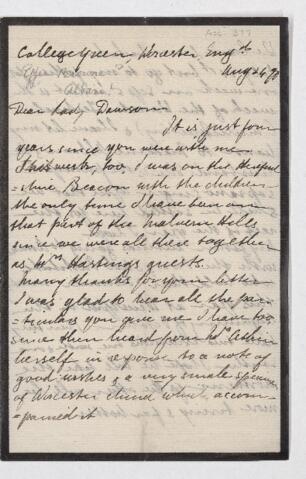 College Green, Worcester Eng'd
Aug 26 90
Dear Lady Dawson
It is just four
years since you were with me
This week, too, I was on the
Beacon with the children
the only time I have been on
that part of the Malvern Hills
since we were all there together
as Mrs Hastings guests.
Many thanks for your letter
I was glad to hear all the par
=ticulars you give me I have too,
since then heard from
herself in response to a note of
good wishes & a very small specimen
of Worcester china which accom-
panied it